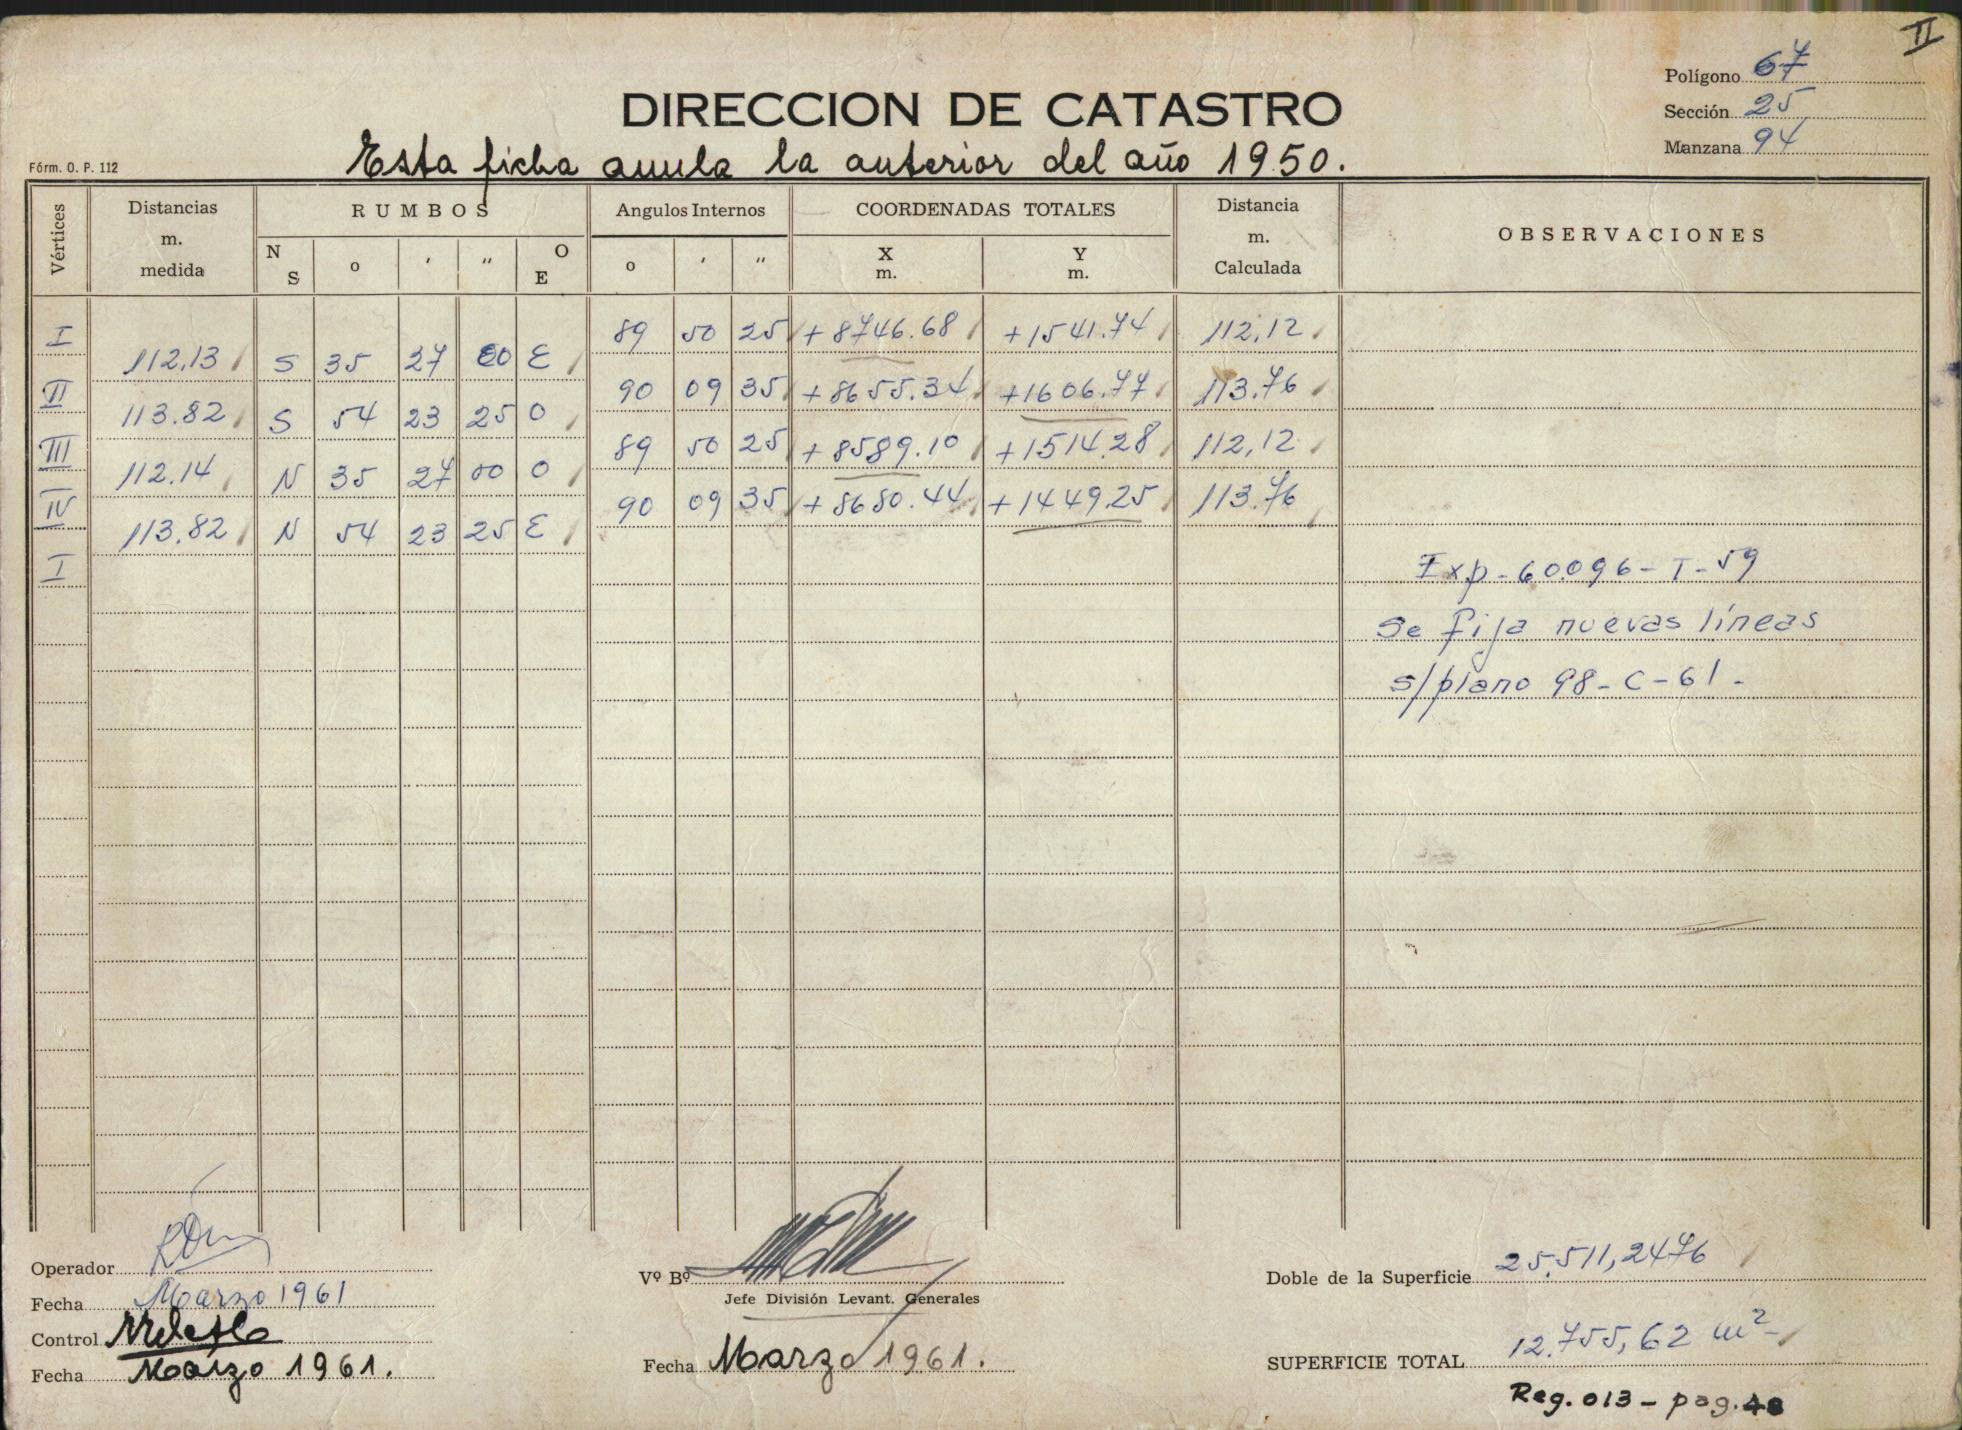 II
Polígono 67
Sección 25
Manzana 94
DIRECCION DE CATASTRO
Esta ficha anula la anterior del año 1950.
Fórm. O. P. 112
Vértices
Distancias m. medida
RUMBOS
N S o ' '' O E
Angulos Internos
o ' ''
COORDENADAS TOTALES
X m. Y m.
Distancia m. Calculada
OBSERVACIONES
I 89 50 25 +8746.68 +1541.74 112,12
112,13 S 35 27 00 E
II 90 09 35 +8655.34 +1606.77 113.76
113.82 S 54 23 25 O
III 89 50 25 +8589.10 +1514.28 112,12
112.14 N 35 27 00 O
IV 90 09 35 +8680.44 +1449.25 113.76
113.82 N 54 23 25 E
I
Exp-60096-T-59
Se fija nuevas líneas
s/plano 98-C-61-
Operador
Fecha Marzo 1961
Control
Fecha Marzo 1961.
Vº Bº
Jefe División Levant. Generales
Fecha Marzo 1961.
Doble de la Superficie 25.511,2476
SUPERFICIE TOTAL 12.755,62 m2-
Reg. 013 - pag. 48